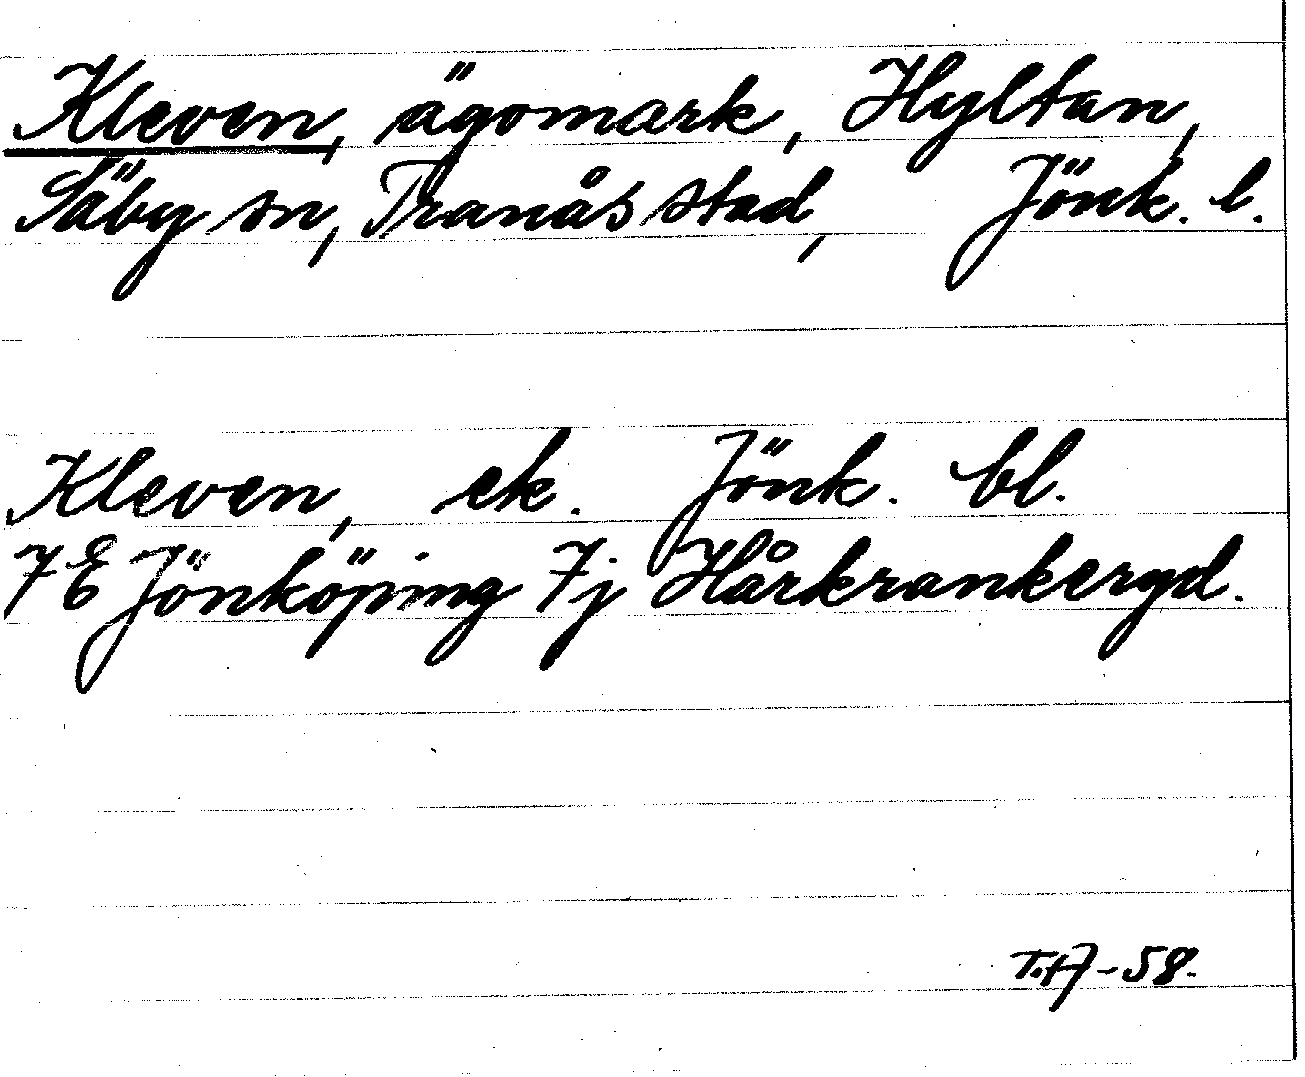 Kleven, ägomark, Hyltan,
Säby sn, Tranås stad, Jönk. l.
Kleven, ek. Jönk. bl.
7 E Jönköping 7j Hårkrankeryd.
-58.